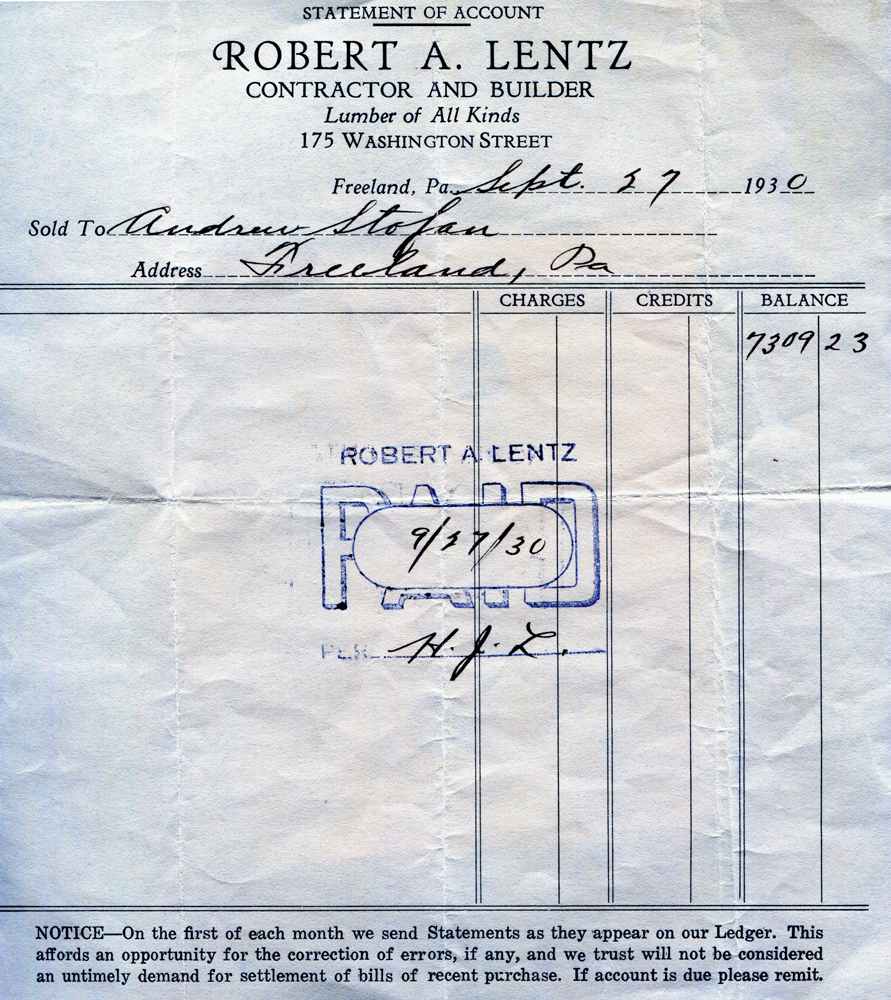 STATEMENT OF ACCOUNT
ROBERT A. LENTZ
CONTRACTOR AND BUILDER
Lumber of All Kinds
175 WASHINGTON STREET
Freeland, Pa. Sept. 27 1930
Sold To Andrew Stofan
Address Freeland, Pa
CHARGES CREDITS BALANCE
7309 23
ROBERT A. LENTZ
PAID
9/27/30
PER H. J. L.
NOTICE—On the first of each month we send Statements as they appear on our Ledger. This
affords an opportunity for the correction of errors, if any, and we trust will not be considered
an untimely demand for settlement of bills of recent purchase. If account is due please remit.